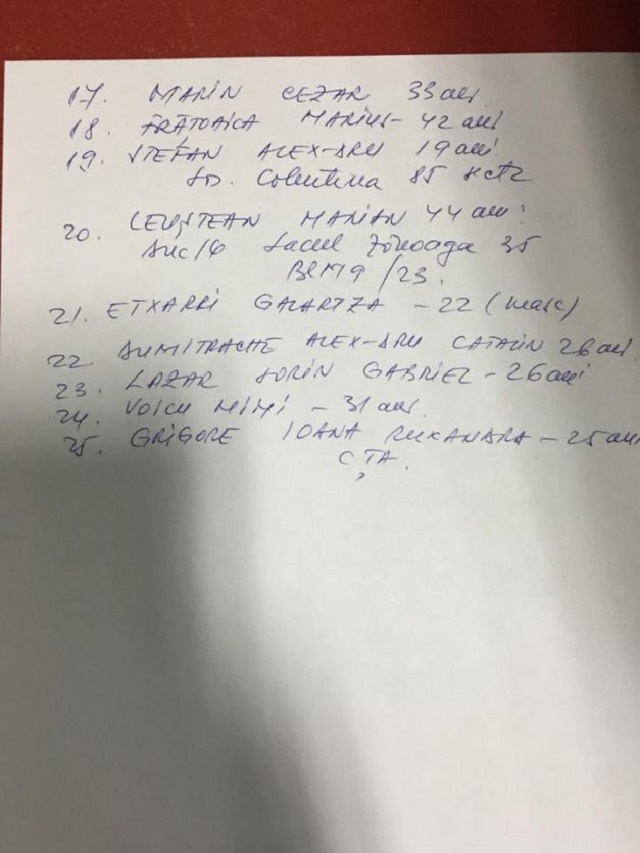 17. MARIN CEZAR 33 ani
18. FRĂȚOAICA MARIUS - 42 ani
19. STEFAN ALEX-DRU 19 ani
Colentina 85
20. MARIAN 44 ani
Lacul Zănoaga 35
BL M9 / 23.
21. ETXARRI GALARTZA - 22 (masc)
22 DUMITRACHE ALEX-DRU CATALIN 26 ani
23. LAZAR SORIN GABRIEL - 26 ani
24. VOICU MIMI - 31 ani.
25. GRIGORE IOANA RUXANDRA - 25 ani
CȚA.